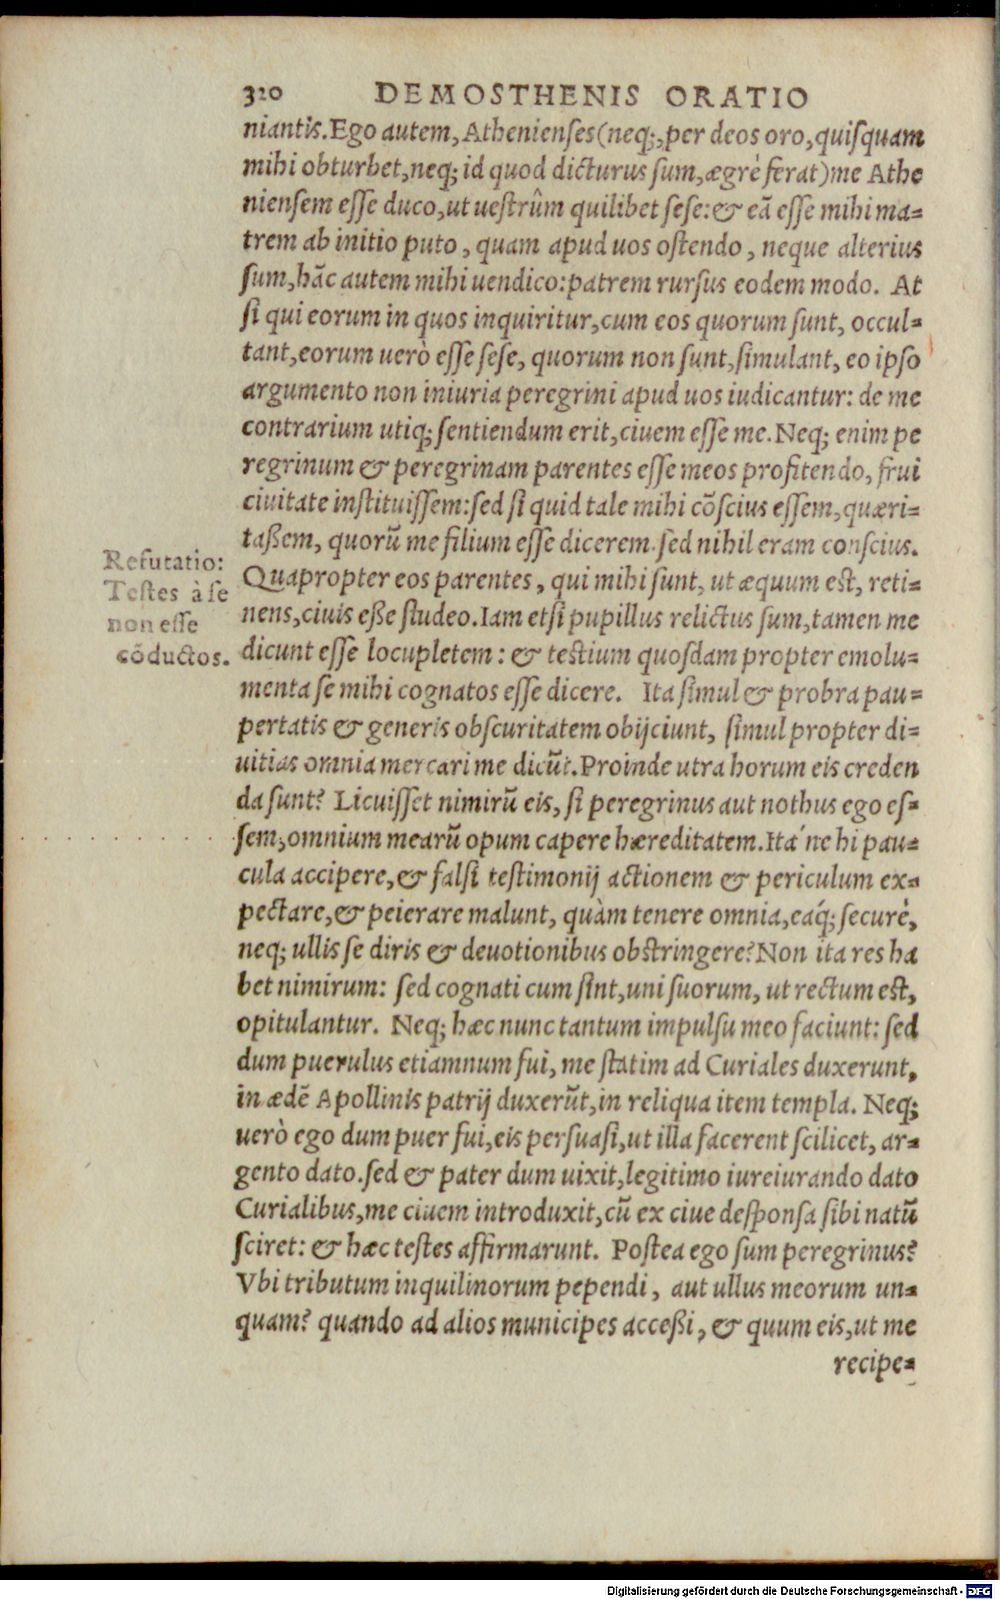 320 DEMOSTHENIS ORATIO
niantis. Ego autem, Athenienses (neq;, per deos oro, quisquam
mihi obturbet, neq; id quod dicturus sum, ægrè ferat) me Athe
niensem esse duco, ut uestrûm quilibet sese: & eā esse mihi ma-
trem ab initio puto, quam apud uos ostendo, neque alterius
sum, hāc autem mihi uendico: patrem rursus eodem modo. At
si qui eorum in quos inquiritur, cum eos quorum sunt, occul-
tant, eorum uerò esse sese, quorum non sunt, simulant, eo ipso
argumento non iniuria peregrini apud uos iudicantur: de me
contrarium utiq; sentiendum erit, ciuem esse me. Neq; enim pe
regrinum & peregrinam parentes esse meos profitendo, frui
ciuitate instituissem: sed si quid tale mihi cōscius essem, quæri-
taßem, quorū me filium esse dicerem. sed nihil eram conscius.
Refutatio:
Testes à se
non esse
cōductos.
Quapropter eos parentes, qui mihi sunt, ut æquum est, reti-
nens, ciuis eße studeo. Iam etsi pupillus relictus sum, tamen me
dicunt esse locupletem: & testium quosdam propter emolu-
menta se mihi cognatos esse dicere. Ita simul & probra pau-
pertatis & generis obscuritatem obijciunt, simul propter di-
uitias omnia mercari me dicūt. Proinde utra horum eis creden
da sunt? Licuisset nimirū eis, si peregrinus aut nothus ego es-
sem, omnium mearū opum capere hæreditatem. Ita'ne hi pau-
cula accipere, & falsi testimonij actionem & periculum ex-
pectare, & peierare malunt, quàm tenere omnia, eaq́; securè,
neq; ullis se diris & deuotionibus obstringere? Non ita res ha
bet nimirum: sed cognati cum sint, uni suorum, ut rectum est,
opitulantur. Neq; hæc nunc tantum impulsu meo faciunt: sed
dum puerulus etiamnum fui, me statim ad Curiales duxerunt,
in ædē Apollinis patrij duxerūt, in reliqua item templa. Neq;
uerò ego dum puer fui, eis persuasi, ut illa facerent scilicet, ar-
gento dato. sed & pater dum uixit, legitimo iureiurando dato
Curialibus, me ciuem introduxit, cū ex ciue desponsa sibi natū
sciret: & hæc testes affirmarunt. Postea ego sum peregrinus?
Vbi tributum inquilinorum pependi, aut ullus meorum un-
quam? quando ad alios municipes acceßi, & quum eis, ut me
recipe-
Digitalisierung gefördert durch die Deutsche Forschungsgemeinschaft - DFG